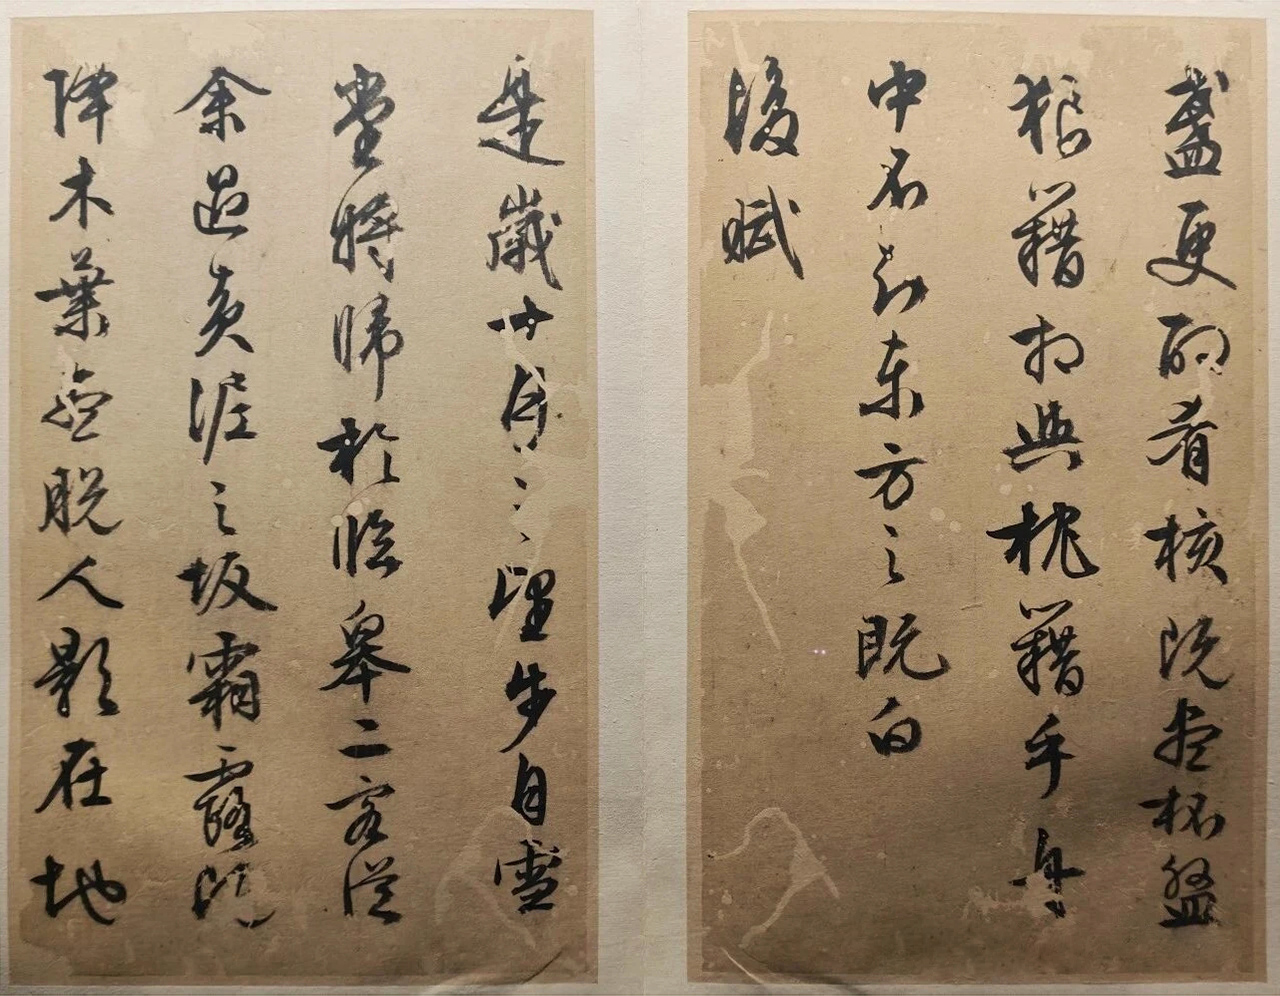 盞更酌肴核既盡杯盤
狼籍相與枕籍乎舟
中不知東方之既白
後賦
是歲十月之望步自雪
堂將歸於臨皋二客從
余過黃泥之坂霜露既
降木葉盡脫人影在地